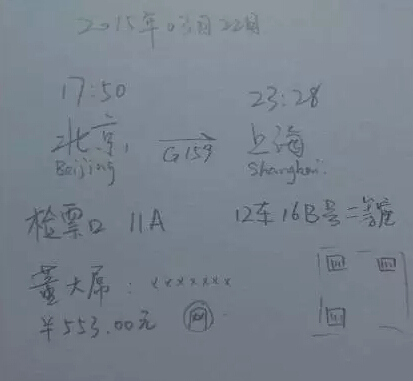 2015年03月22日
17:50 23:28
北京 G159 上海
Beijing Shanghai
检票口 11A 12车16B号二等座
董大屌:×××××××
¥553.00元 网